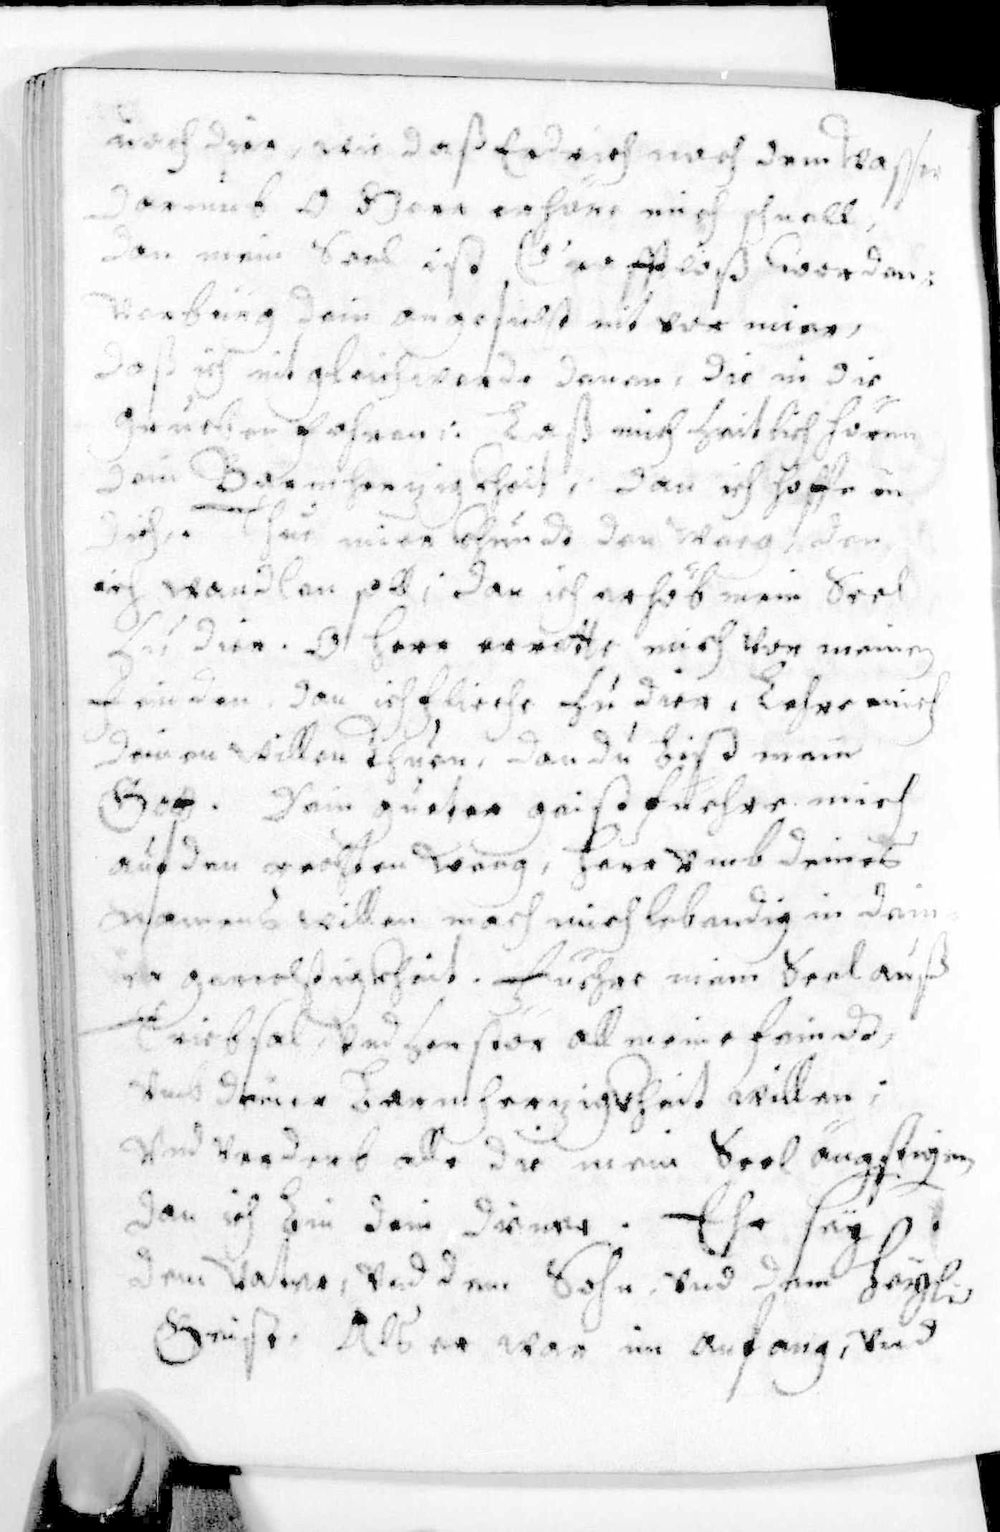 nach dier, wie daß Erdrich nach dem wasser
Darumb O Herr erhöre mich schnell,
dan mein Seel ist Crafftloß worden:
Verbürg dein angesicht nit vor mier,
daß ich nit gleich werde denen, die in die
Grueben fahren: Laß mich Zeitlich hören
dein Barmherzigkheit, dan ich hoffe in
dich. Thue mier khundt den Weeg, den
ich wandlen soll; dan ich erhöb mein Seel
Zu dier. O herr errötte mich von meinen
Feinden, dan ich fliehe zu dier, Lehre mich
deinen willen thuen, dan du bist mein
Gott. Dein gueter geist fuehre mich
auf den rechten Weeg, herr vmb deines
namens willen mach mich lebendig in dein=
er gerechtigkheit. Fuehre mein Seel auß
Triebsal, vnd zerstör all meine feinde,
vmb deiner Barmherzigkheit willen;
Vnd verderb alle die mein Seel ängstigen
dan ich bin dein diener. Ehr sey
dem Vatter, vnd dem Sohn, vnd dem heyli:
Geist. Als er war im anfang, vnd